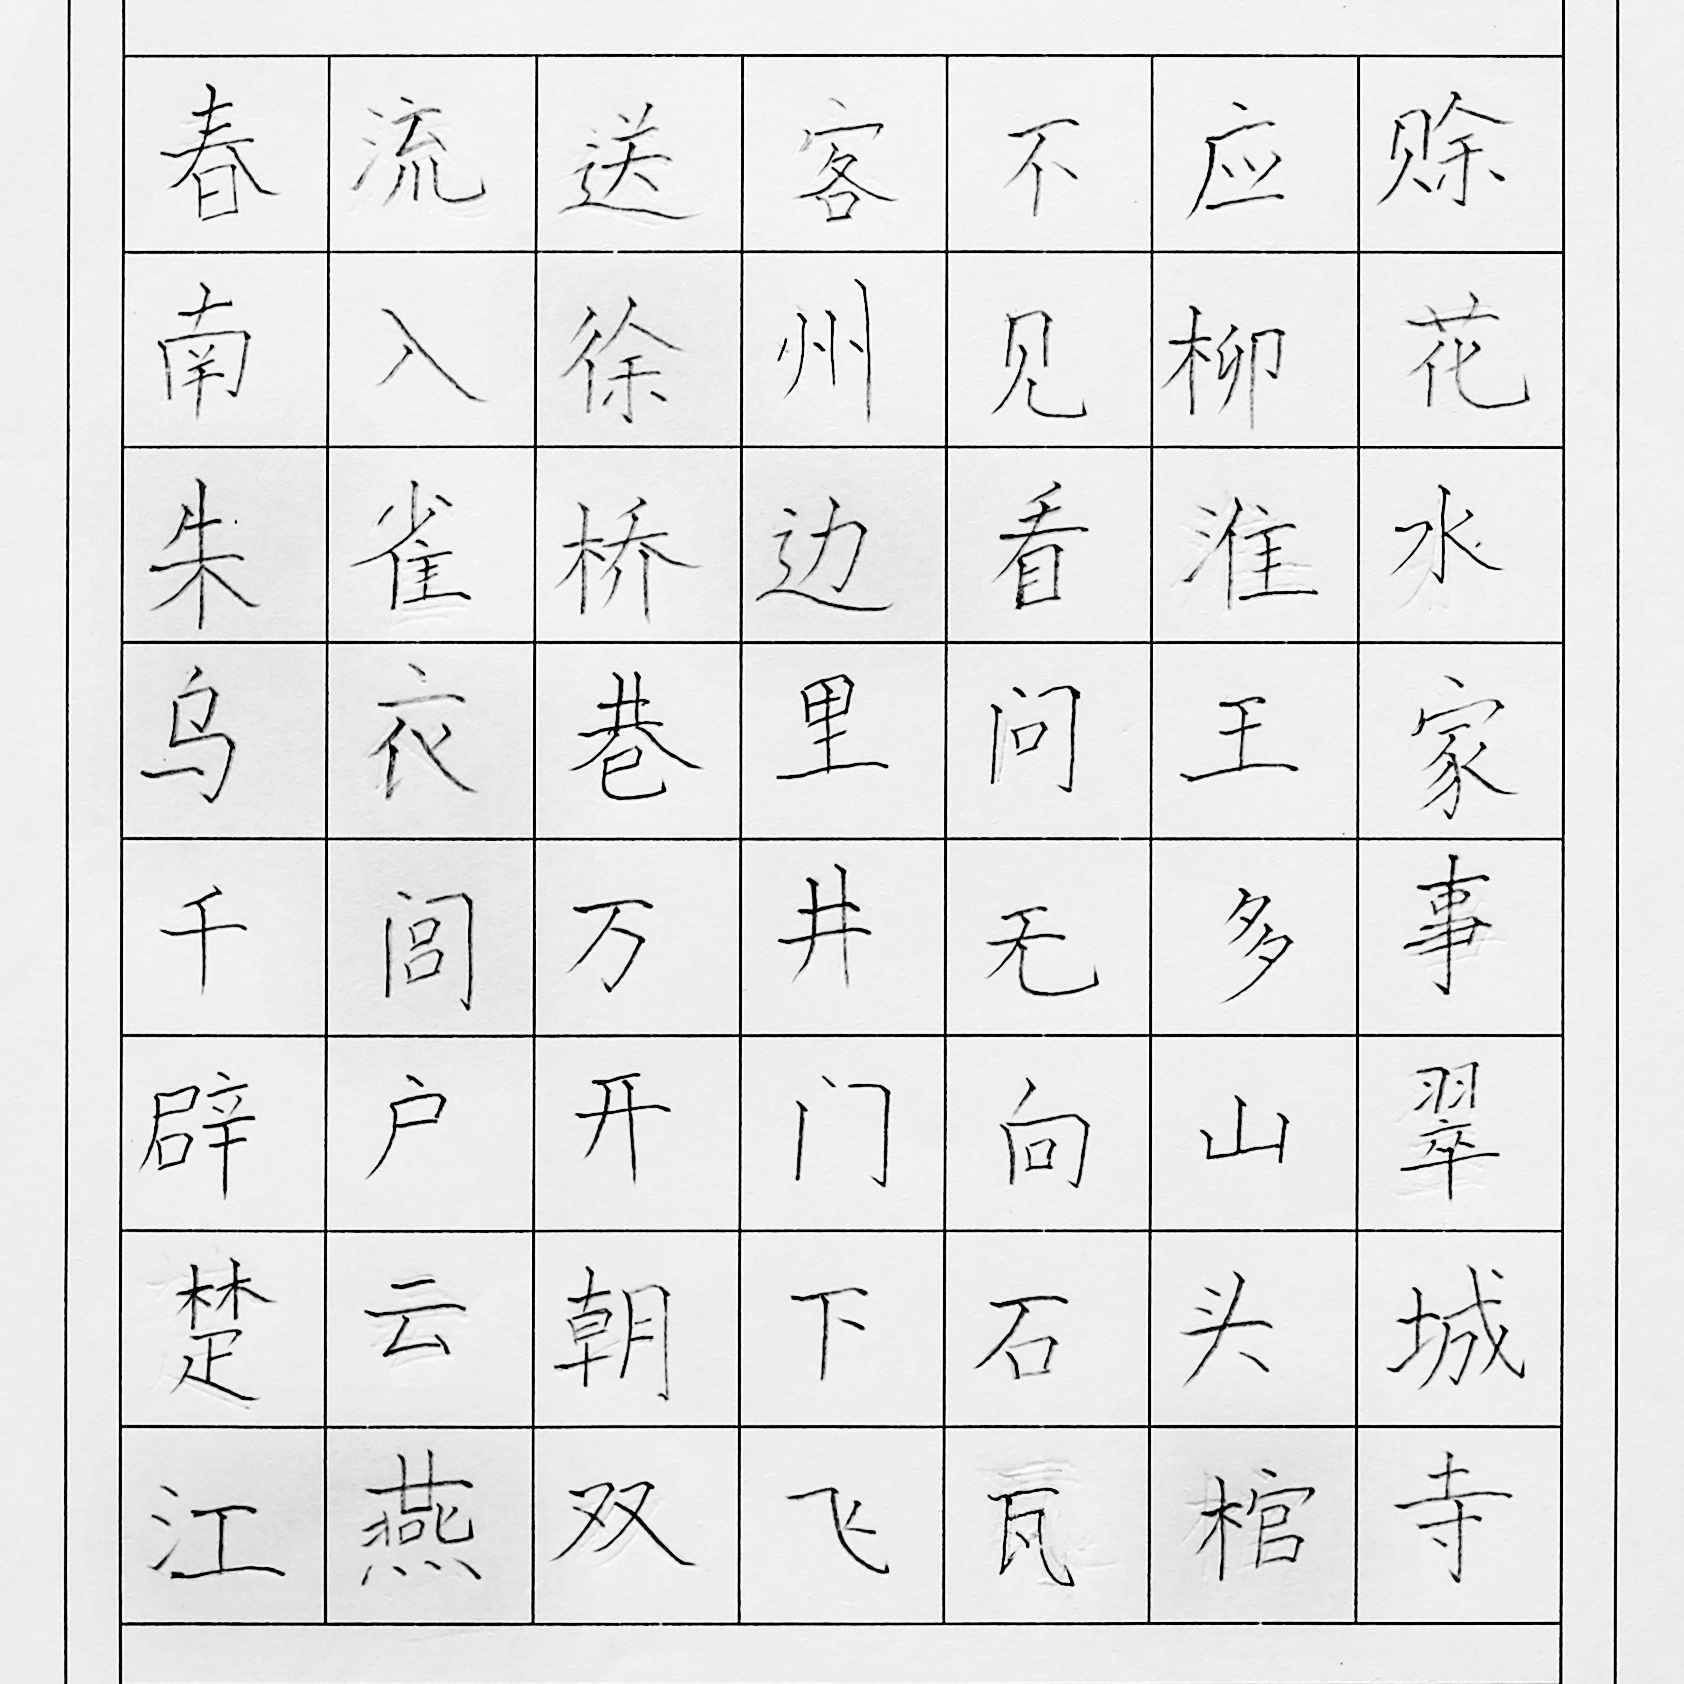 春流送客不应赊
南入徐州见柳花
朱雀桥边看淮水
乌衣巷里问王家
千闾万井无多事
辟户开门向山翠
楚云朝下石头城
江燕双飞瓦棺寺